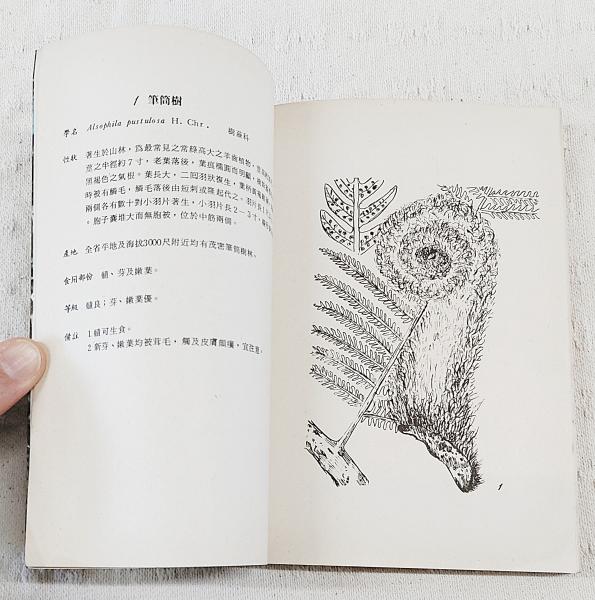 1 筆筒樹
學名 Alsophila pustulosa H. Chr. 樹蕨科
性狀 著生於山林，爲最常見之常綠高大之羊齒植物，
莖之半徑約7寸，老葉落後，葉痕橢圓而明顯，
黑褐色之氣根。葉長大，二回羽狀複生，葉柄
時被有鱗毛，鱗毛落後由短刺或隆起代之。羽片
兩側各有數十對小羽片著生，小羽片長2－3寸，
。胞子囊堆大而無胞被，位於中筋兩側。
產地 全省平地及海拔3000尺附近均有茂密筆筒樹林。
食用部份 髓、芽及嫩葉。
等級 髓良；芽、嫩葉優。
備註 1.髓可生食。
2.新芽、嫩葉均被茸毛，觸及皮膚頗癢，宜注意。
1